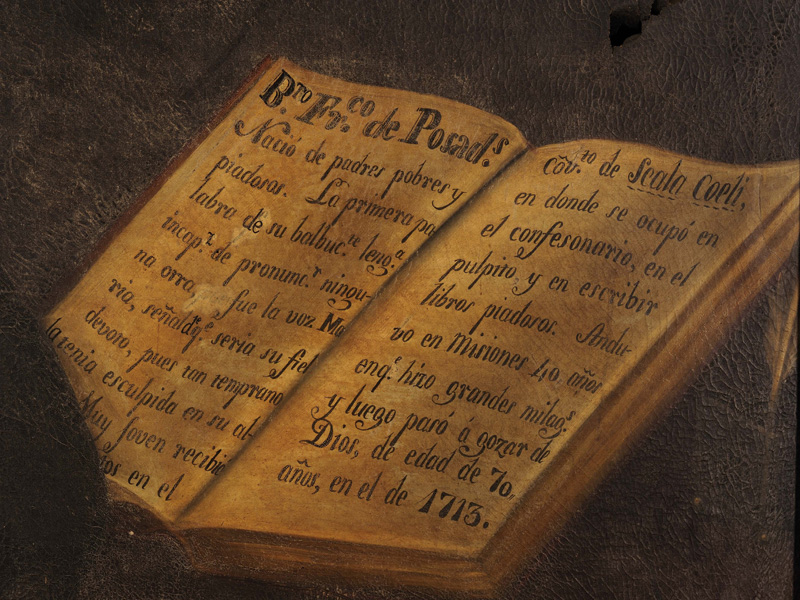 B.ro Fr.co de Posad.s
Nació de padres pobres y
piadosos. La primera pa
labra de su balbuc.te leng.a
incap.z de pronunc.r ningu-
na otra, fue la voz Ma
ria, señal dq.e seria su fiel
devoto, pues tan temprano
la tenia esculpida en su al-
Muy joven recibió
os en el
Cōv.to de Scala Coeli,
en donde se ocupó en
el confesonario, en el
pulpito, y en escribir
libros piadosos. Andu-
vo en Misiones 40 años
enq.e hizo grandes milag.s
y luego pasó á gozar de
Dios, de edad de 70,
años, en el de 1713.